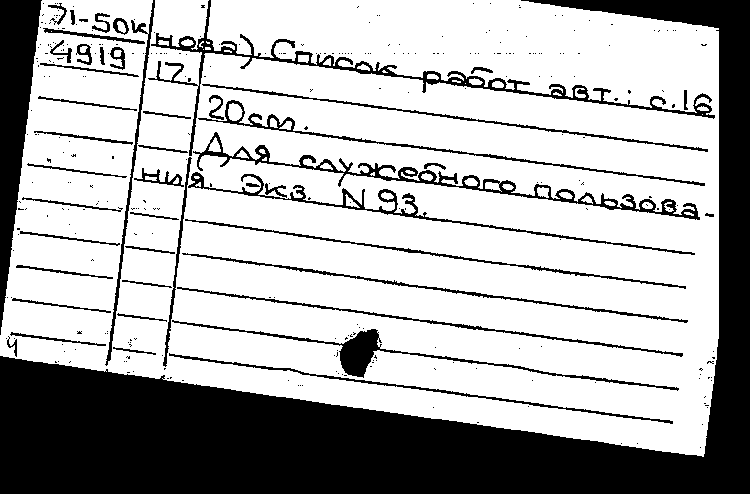 71-50к
4919
нова). Список работ авт.: с.16
17.
20см.
Для служебного пользова-
ния. Экз. N 93.